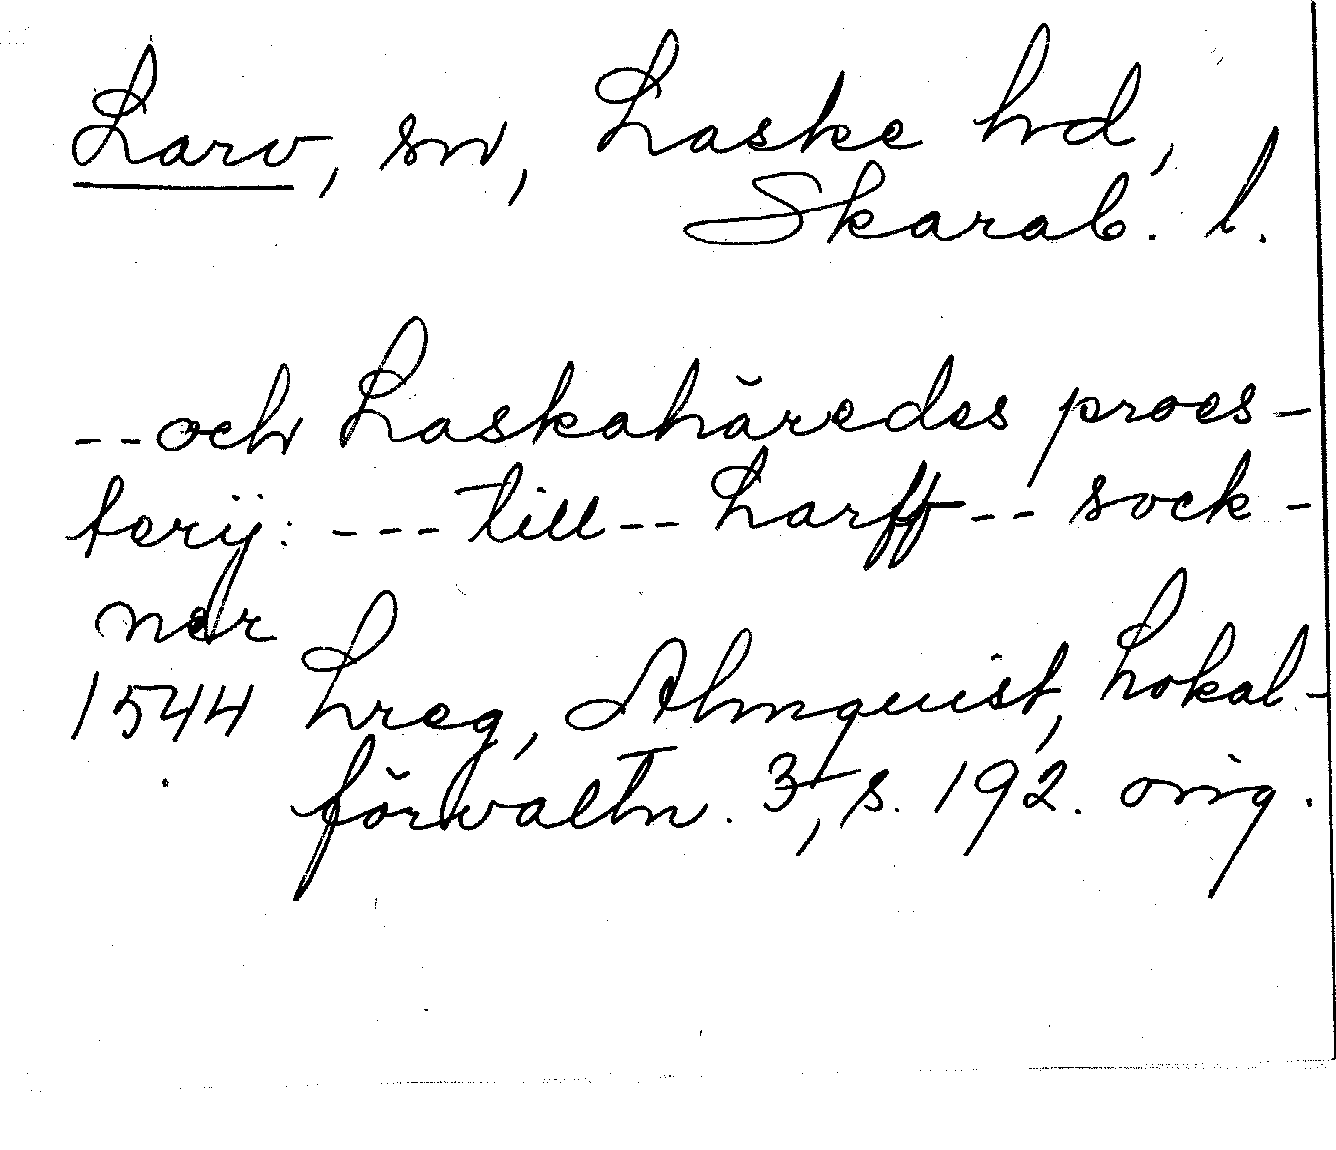 Larv, sn, Laske hd,
Skarab. l.
-- och Laskahäredes proes-
terij: --- till -- Larff -- sock-
ner
1544 Lreg, Almquist, Lokal-
förvaltn. 3, s. 192. orig.